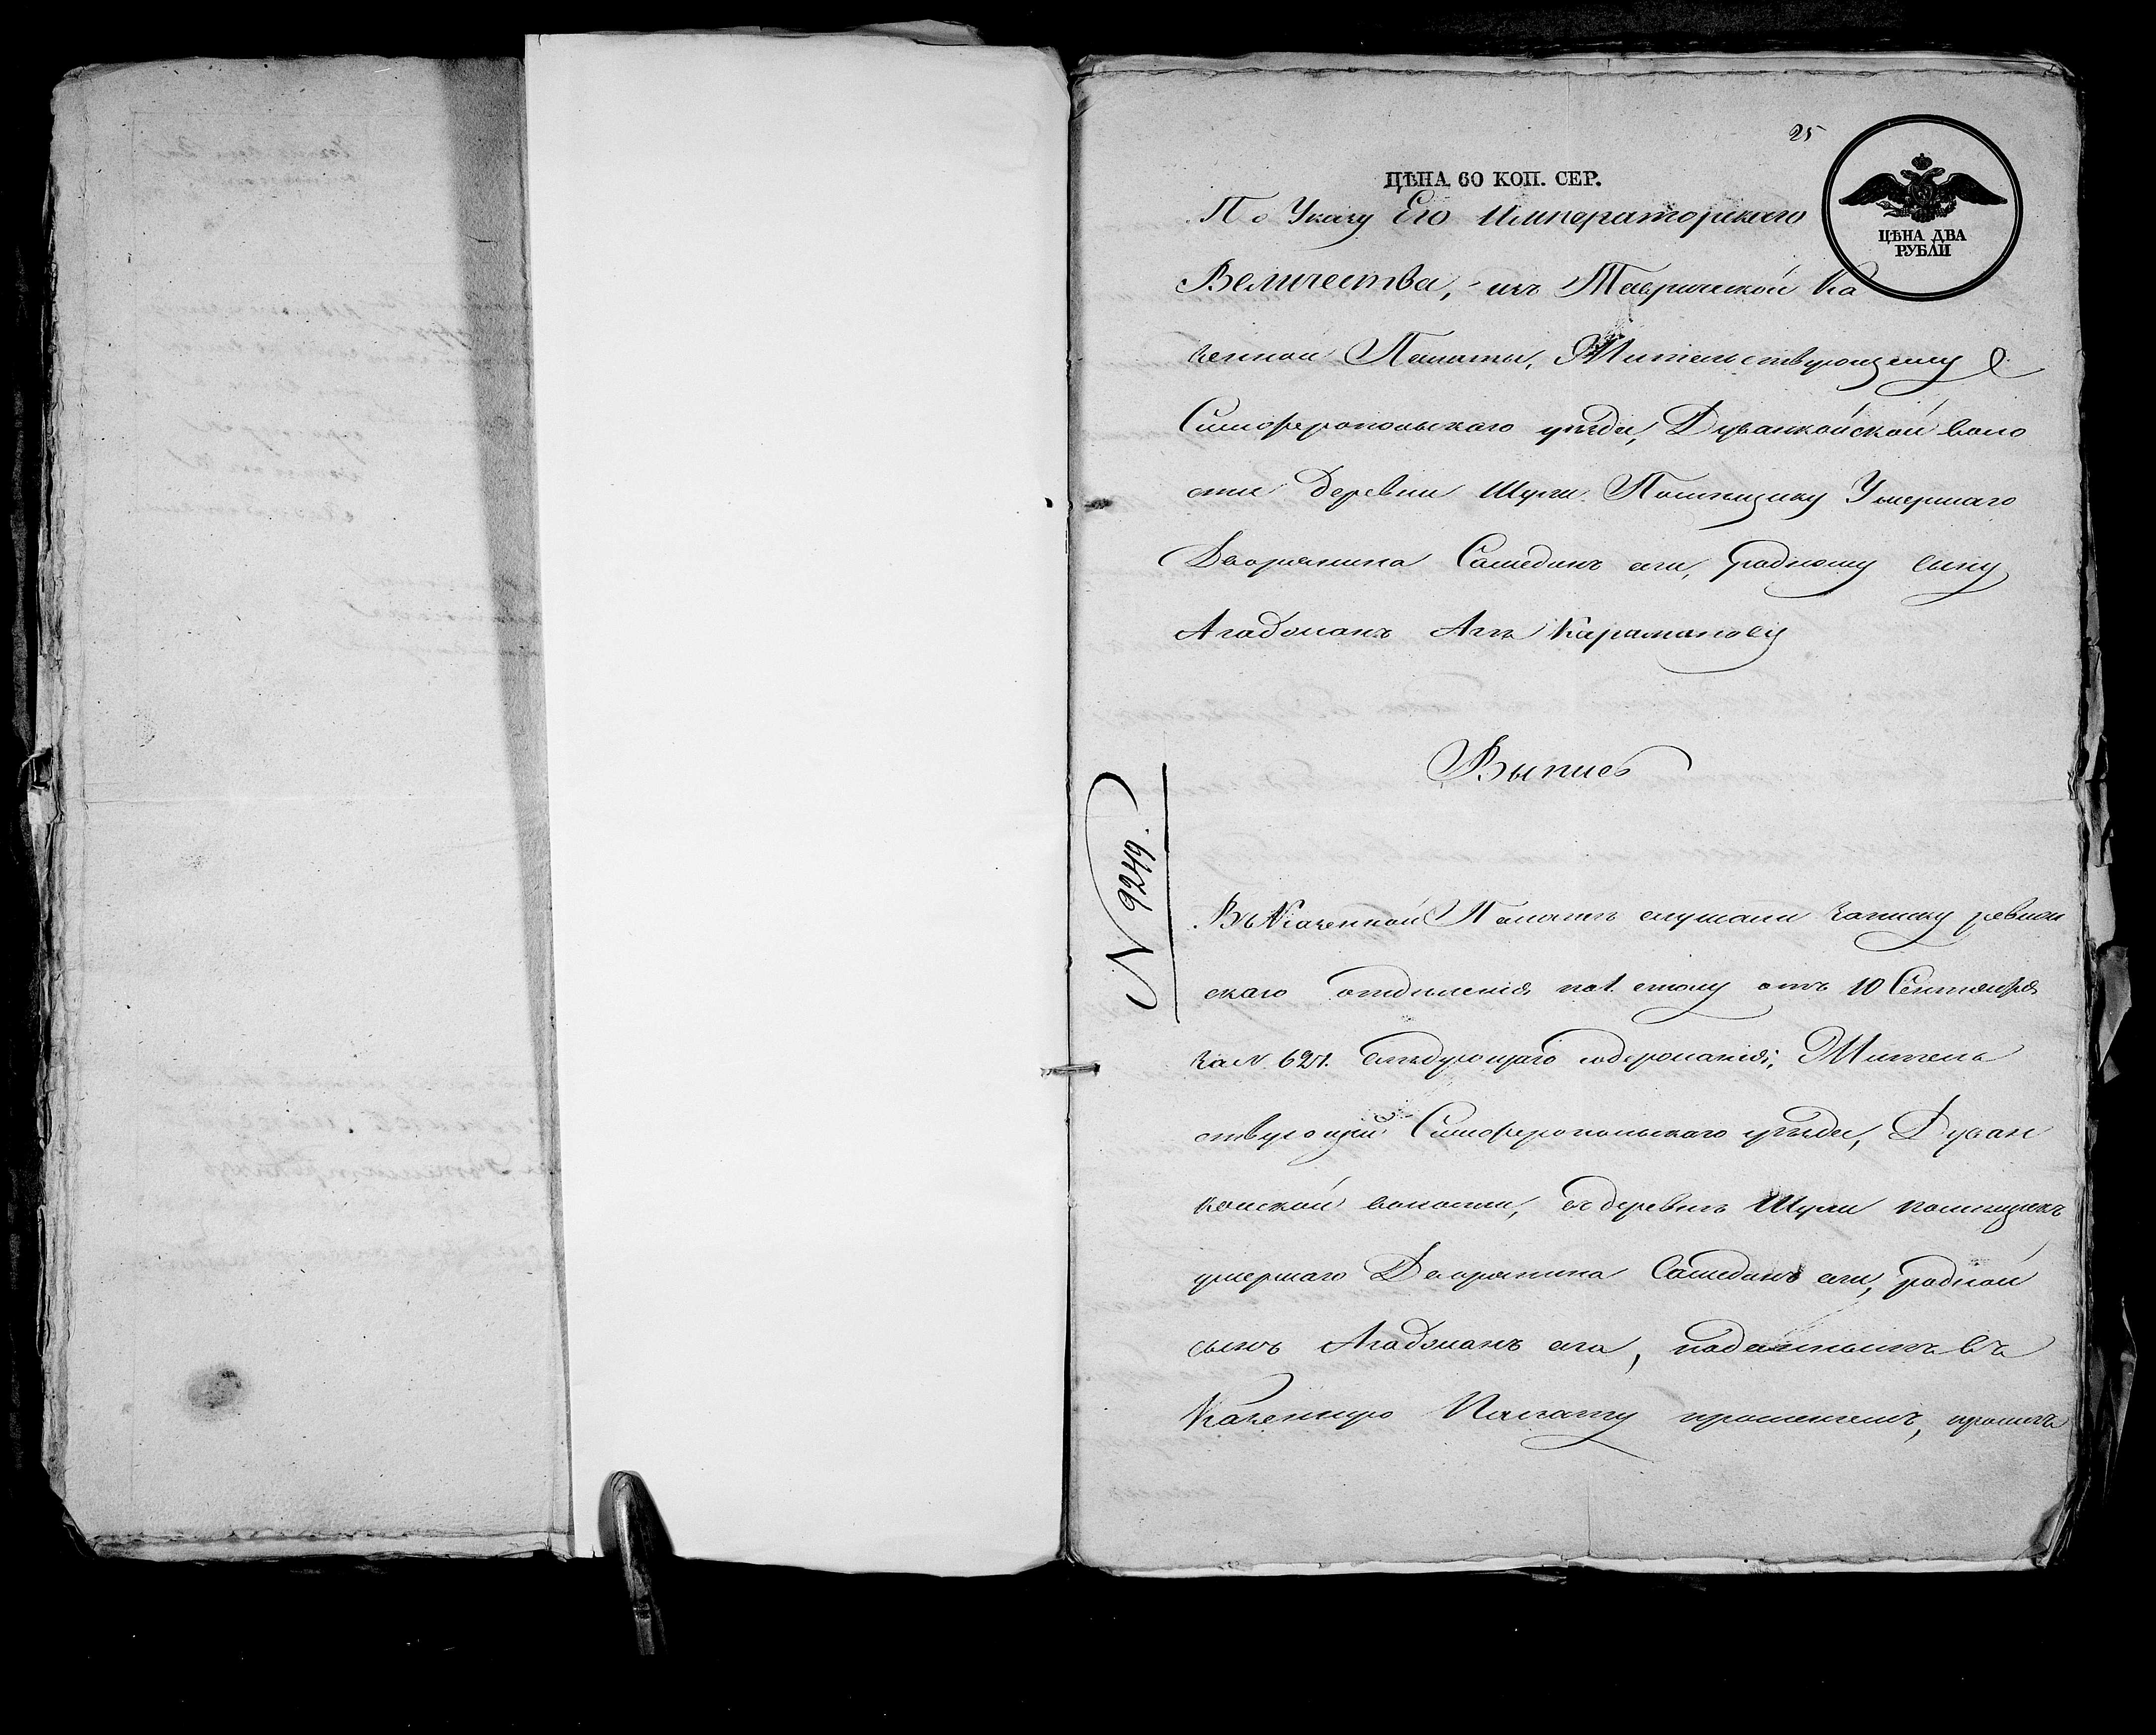 25
ЦѢНА 60 КОП. СЕР.
ЦѢНА ДВА
РУБЛИ
По Указу Его Императорскаго
Величества, изъ Таврической Ка
зенной Палаты, Жительствующему
Симферопольскаго уѣзда, Дуванкойской воло
сти деревни Шули Помѣщику Умершаго
Дворянина Самединъ аги, родному сыну
Агаджанъ Агѣ Караманову
Выпись
N 9249.
Въ Казенной Палатѣ слушали записку ревиз
скаго отдѣленія по 1. столу отъ 10 Сентября
за N. 621. слѣдующаго содержанія: Житель
ствующій Симферопольскаго уѣзда, Дуван
койской волости, въ деревнѣ Шули помѣщикъ
умершаго Дворянина Самединъ аги, родной
сынъ Агаджанъ ага, поданнымъ въ
Казенную Палату прошеніемъ, проситъ